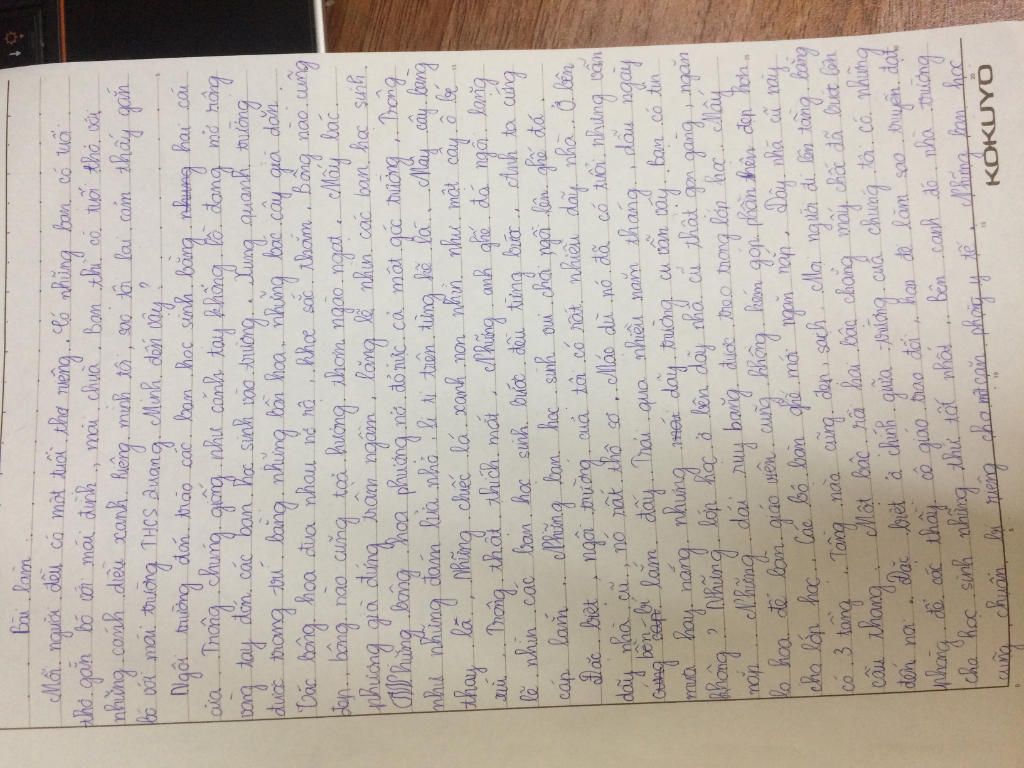 Bài làm
Mỗi người đều có một tuổi thơ riêng. Có những bạn có tuổi
thơ gắn bó với mái đình, mái chùa. Bạn thì có tuổi thơ với
những cánh diều xanh. Riêng mình tôi, sao tôi lại cảm thấy gắn
bó với mái trường THCS Quang Minh đến vậy?
Ngôi trường đón trào các bạn học sinh bằng hai cái
cửa. Trông chúng giống như cánh tay khổng lồ đang mở rộng
vòng tay đón các bạn học sinh vào trường. Xung quanh trường
được trang trí bằng những bồn hoa, những bậc cây già dặn.
Các bông hoa đua nhau nở rộ, khoe sắc thắm. Bông nào cũng
đẹp, bông nào cũng toả hương thơm ngào ngạt. Mấy bác
phượng già đứng trầm ngâm, lặng lẽ nhìn các bạn học sinh.
Những bông hoa phượng nở đỏ rực cả một góc trường. Trông
như những đám lửa nhỏ, li ti trên từng kẽ lá. Mấy cây bàng
thay lá, những chiếc lá xanh non nhìn như một cây ô bé
xíu. Trông thật thích mắt. Những anh ghế đá ngồi lặng
lẽ nhìn các bạn học sinh bước đều từng bước. Anh ta cứng
cáp lắm. Những bạn học sinh vui chơi ngồi lên ghế đá.
Đặc biệt, ngôi trường của tôi có rất nhiều dãy nhà. Ở bên
dãy nhà cũ, nó rất thô sơ. Mặc dù nó đã có tuổi nhưng vẫn
bền bỉ lắm đấy. Trải qua nhiều năm tháng, dẫu ngày
mưa hay nắng nhưng dãy trường cũ vẫn vậy. Bạn có tin
không? Những lớp học ở bên dãy nhà cũ thật gọn gàng, ngăn
nắp. Những dải ruy băng được treo trong lớp học. Mấy
lọ hoa để bàn giáo viên cũng không kém góp phần đẹp hơn
cho lớp học. Các bộ bàn ghế mới ngăn nắp. Dãy nhà cũ này
có 3 tầng. Tầng nào cũng đẹp, sạch. Mọi người đi lên tầng bằng
cầu thang. Một bậc rồi hai bậc chẳng mấy chốc đã bước lên
đến nơi. Đặc biệt ở chính giữa trường của chúng tôi có những
phòng để các thầy, cô giáo trao đổi, bàn để làm sao truyền đạt
cho học sinh những thứ tốt nhất. Bên cạnh đó nhà trường
cũng chuẩn bị riêng cho một căn phòng y tế. Những bạn học
KOKUYO